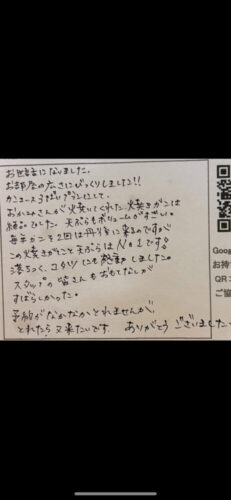 お世話になりました。
お部屋の広さにびっくりしました!!
カニコース3ぱいプランにして、
おかみさんが焼いてくれた焼きガニは
絶品でした。天ぷらもボリュームがすごい。
毎年カニを2回は丹後に来るのですが
この焼きガニと天ぷらはNo1です!
湯もよく、コタツにも感動しました。
スタッフの皆さんもおもてなしが
すばらしかった。
予約がなかなかとれませんが、
とれたら又来たいです。ありがとうございました。
Goog
お待
QRコ
ご協